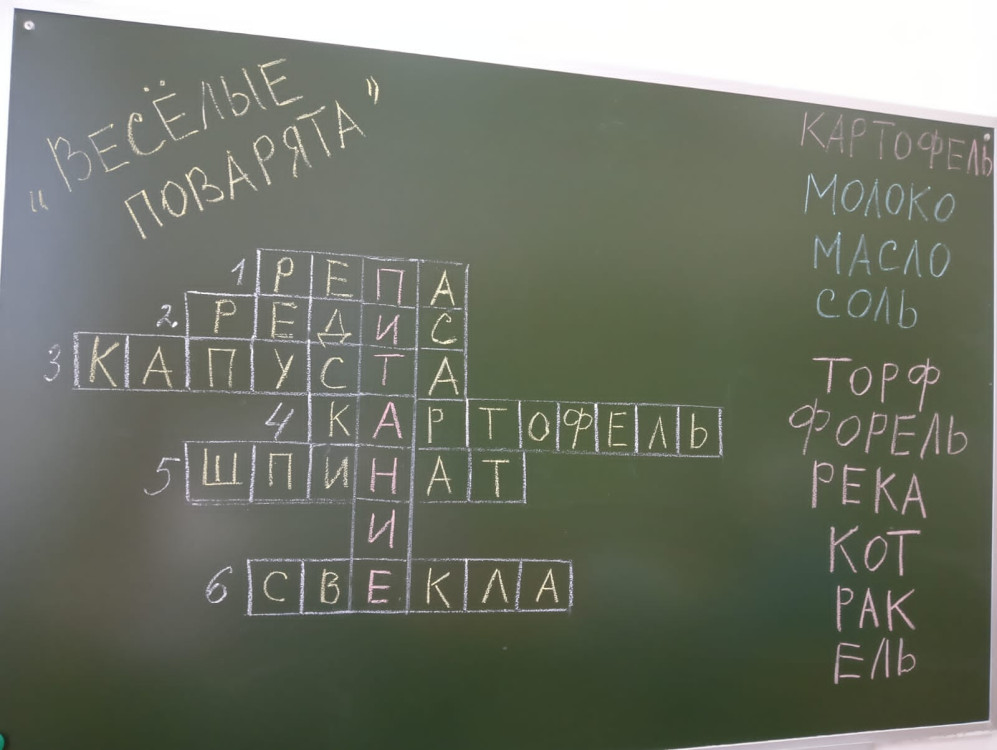 „ВЕСЁЛЫЕ
ПОВАРЯТА”
1 РЕПА
2. РЕДИС
3 КАПУСТА
4 КАРТОФЕЛЬ
5 ШПИНАТ
И
6 СВЕКЛА
КАРТОФЕЛЬ
МОЛОКО
МАСЛО
СОЛЬ
ТОРФ
ФОРЕЛЬ
РЕКА
КОТ
РАК
ЕЛЬ